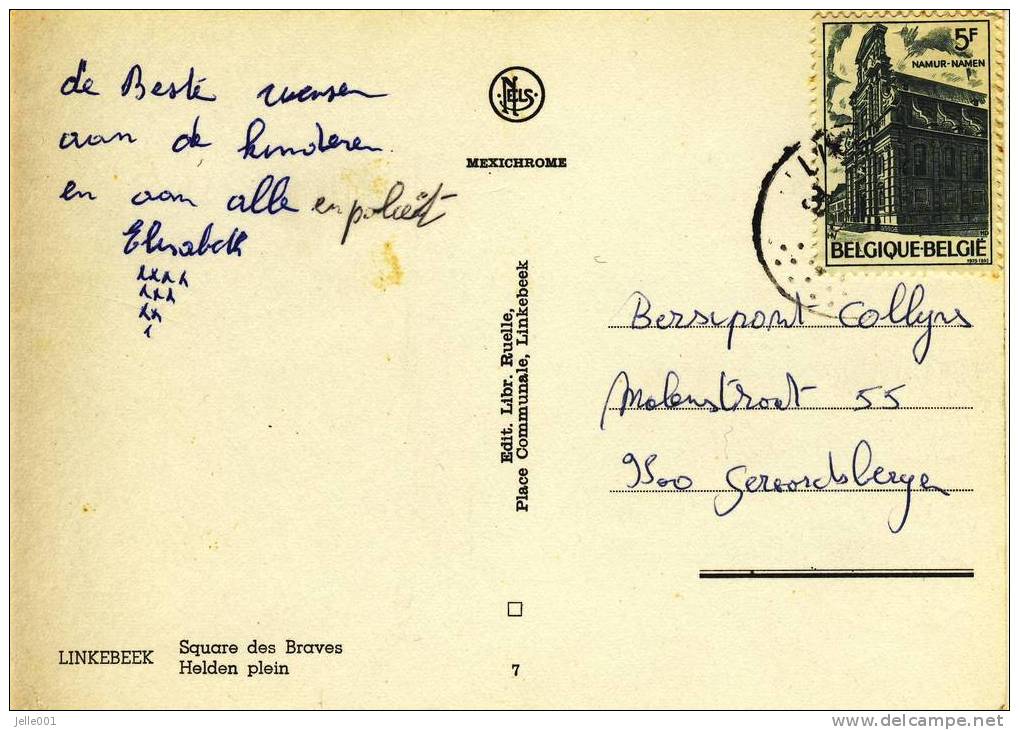 de Beste wensen
aan de kinderen
en aan alle en poliet
Elisabeth
xxxx
xxx
xx
x
NELS
MEXICHROME
Edit. Libr. Ruelle,
Place Communale, Linkebeek
5F
NAMUR-NAMEN
BELGIQUE-BELGIË
Bersipont Collyns
Molenstraat 55
9500 Geraardsbergen
LINKEBEEK
Square des Braves
Helden plein
7
jelle001
www.delcampe.net